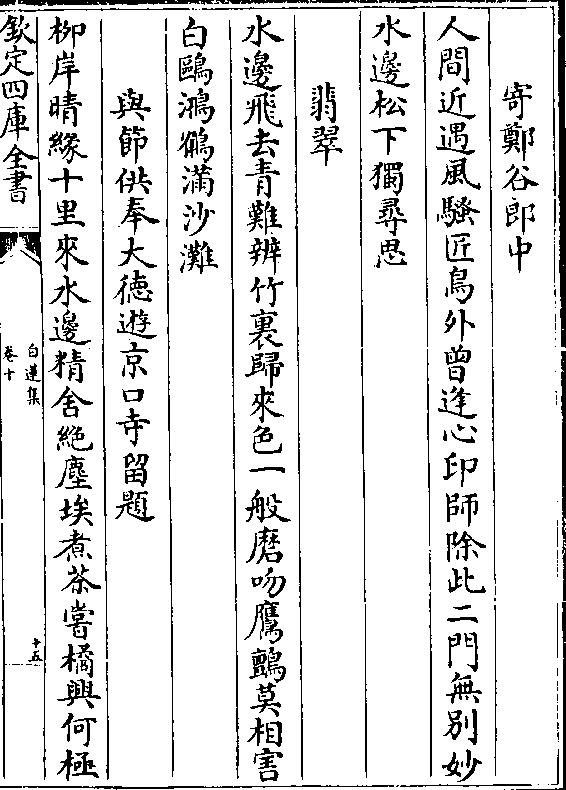 寄鄭谷郎中
人間近遇風騷匠鳥外曾逢心印師除此二門無別妙
水邊松下獨尋思
翡翠
水邊飛去青難辨竹裏歸來色一般磨吻鷹鸇莫相害
白鷗鴻鶴滿沙灘
與節供奉大德遊京口寺留題
柳岸晴緣十里來水邊精舍絶塵埃煮茶嘗橘興何極
欽定四庫全書
白蓮集
卷十
十五